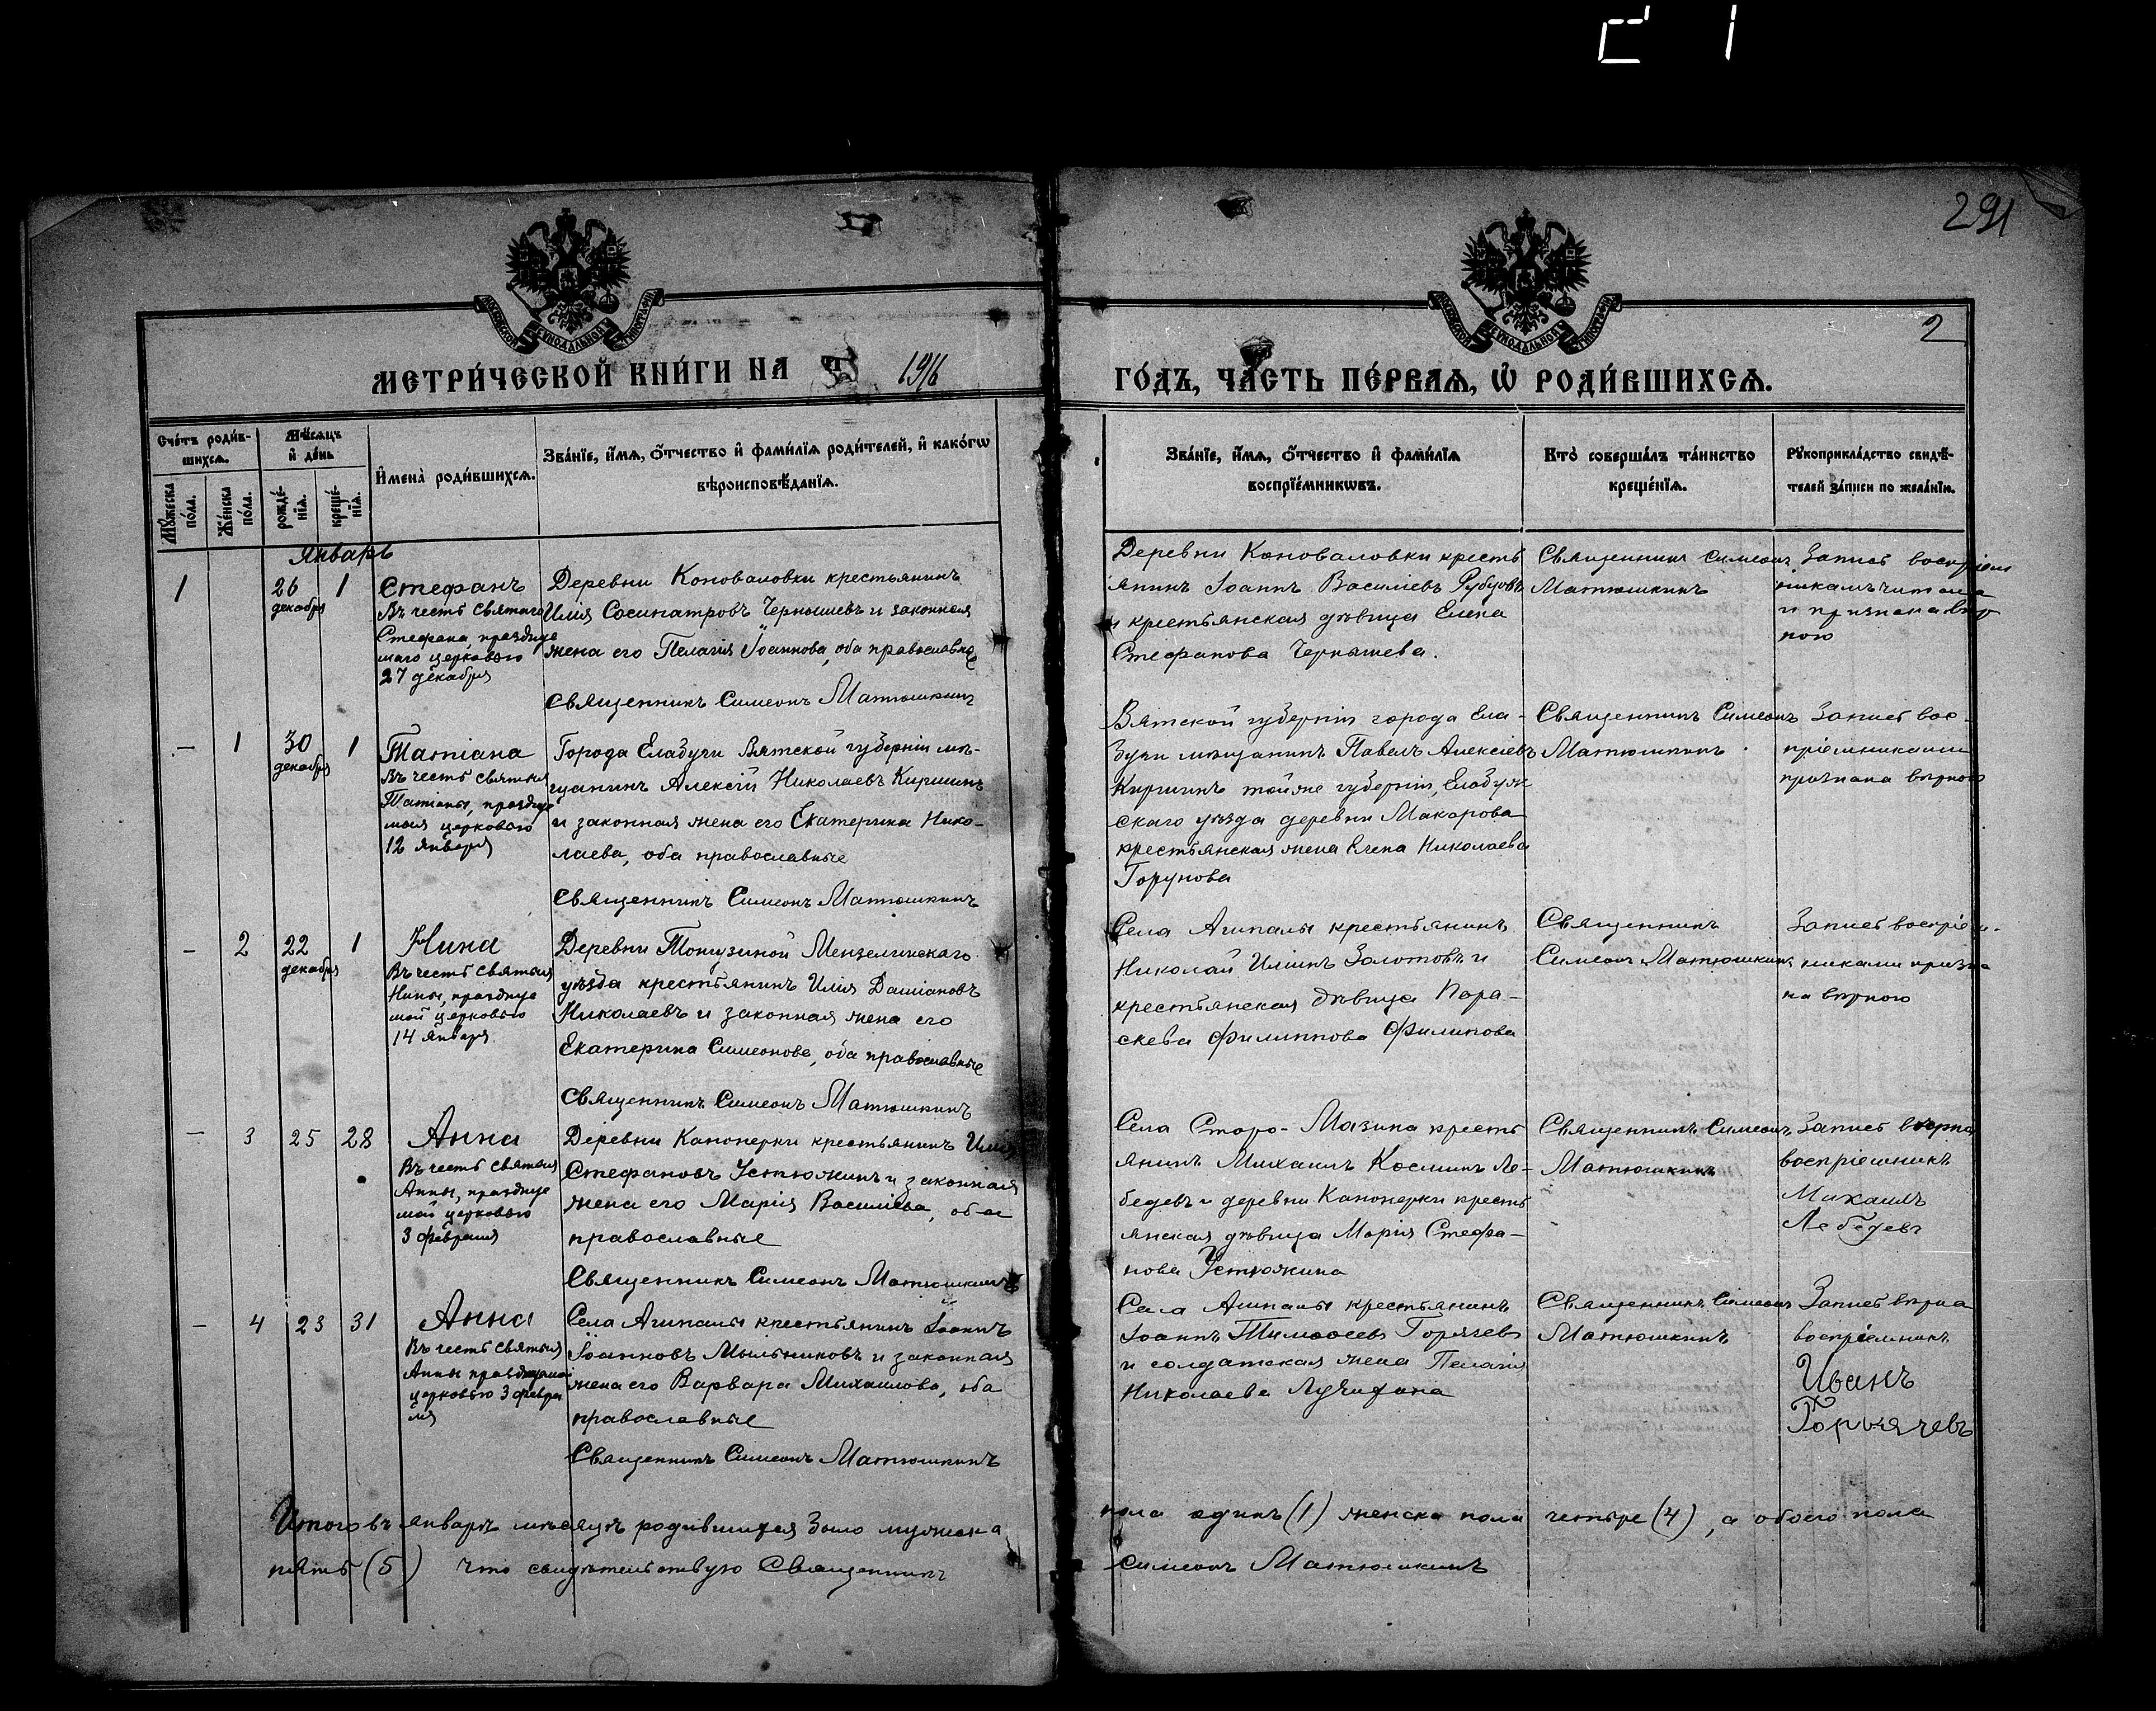 291
2
МЕТРИ́ЧЕСКОЙ КНИ́ГИ НА 1916
ГО́ДЪ, ЧА́СТЬ ПЕ́РВАѦ, Ѡ҆ РОДИ́ВШИХСѦ.
Сче́тъ роди́в-
шихсѧ.
Мѣ́сѧцъ
и҆ де́нь
И҆мена̀ роди́вшихсѧ.
Зва́нїе, и҆́мѧ, ѻ҆́тчество и҆ фами́лїѧ роди́телей, и҆ како́гѡ
вѣроисповѣ́данїѧ.
Мꙋ́жеска
по́ла.
Же́нска
по́ла.
рожде́-
нїѧ.
креще́-
нїѧ.
Зва́нїе, и҆́мѧ, ѻ҆́тчество и҆ фами́лїѧ
воспрїе́мникѡвъ.
Кто̀ соверша́лъ та́инство
креще́нїѧ.
Рꙋкоприкла́дство свидѣ́-
телей за́писи по жела́нїю.
Январь
1 26 1
декабря
Стефанъ
Въ честь святаго
Стефана, праздуе
маго церковью
27 декабря
Деревни Коноваловки крестьянинъ
Илія Сосипатровъ Чернышевъ и законная
жена его Пелагія Іоаннова, оба православные
Священникъ Симеонъ Матюшкинъ
Деревни Коноваловки кресть
янинъ Іоаннъ Василіевъ Рубцовъ
и крестьянская дѣвица Елена
Стефанова Чернышева.
Священникъ Симеонъ
Матюшкинъ
Запись воспріем
никамъ читана
и признана вѣр
ною
— 1 30 1
декабря
Татіана
Въ честь святыя
Татіаны, праздуе
мыя церковью
12 января
Города Елабуги Вятской губерніи мѣ-
щанинъ Алексій Николаевъ Киршинъ
и законная жена его Екатерина Нико-
лаева, оба православные
Священникъ Симеонъ Матюшкинъ
Вятской губерніи города Ела-
буги мѣщанинъ Павелъ Алексіевъ
Киршинъ тойже губерніи, Елабуж
скаго уѣзда деревни Макарова
крестьянская жена Елена Николаева
Горунова
Священникъ Симеонъ
Матюшкинъ
Запись вос-
пріемниками
признана вѣрною
— 2 22 1
декабря
Нина
Въ честь святыя
Нины, праздуе
мой церковью
14 января
Деревни Тонгузиной Мензелинскаго
уѣзда крестьянинъ Илія Даміановъ
Николаевъ и законная жена его
Екатерина Симеонова, оба православные
Священникъ Симеонъ Матюшкинъ
Села Агипалы крестьянинъ
Николай Иліинъ Золотовъ и
крестьянская дѣвица Пара-
скева Филиппова Филипова
Священникъ
Симеонъ Матюшкинъ
Запись воспріем-
никами призна
на вѣрною
— 3 25 28
Анна
Въ честь святыя
Анны, праздуе
мой церковью
3 февраля
Деревни Канонерки крестьянинъ Илія
Стефановъ Устюжинъ и законная
жена его Марія Василіева, оба
православные
Священникъ Симеонъ Матюшкинъ
Села Старо-Мазина кресть
янинъ Михаилъ Косминъ Ле-
бедевъ и деревни Канонерки кресть
янская дѣвица Марія Стефа-
нова Устюжина
Священникъ Симеонъ
Матюшкинъ
Запись вѣрна
воспріемникъ
Михаилъ
Лебедевъ
— 4 23 31
Анна
Въ честь святыя
Анны праздуемой
церковью 3 февра
ля
Села Агипалы крестьянинъ Іоаннъ
Іоанновъ Мыльниковъ и законная
жена его Варвара Михаилова, оба
православные
Священникъ Симеонъ Матюшкинъ
Села Агипалы крестьянинъ
Іоаннъ Тимоѳеевъ Горячевъ
и солдатская жена Пелагія
Николаева
Священникъ Симеонъ
Матюшкинъ
Запись вѣрна
воспріемникъ
Иванъ
Горячевъ
Итого въ январѣ мѣсяцѣ родившихся было мужска
пола одинъ (1) женска пола четыре (4), а обоего пола
пять (5) что свидѣтельствую Священникъ
Симеонъ Матюшкинъ